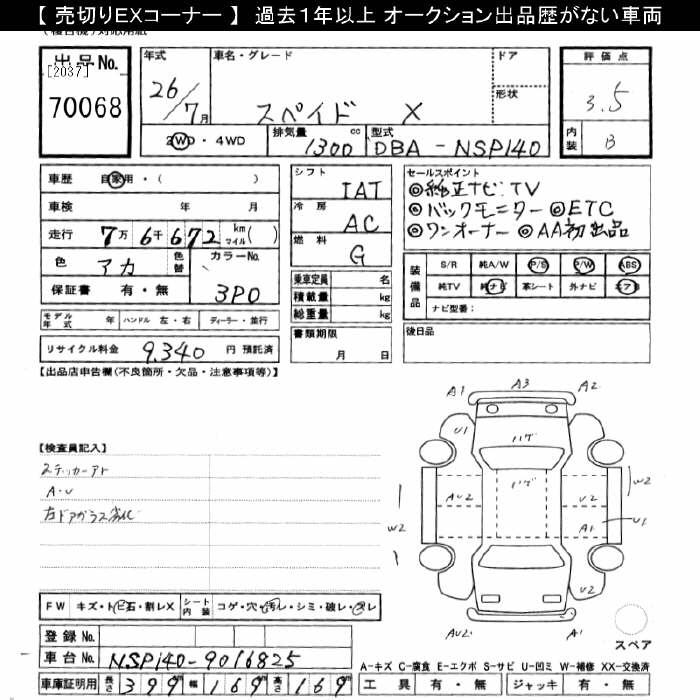 【 売切りEXコーナー 】 過去１年以上 オークション出品歴がない車両
出品No.
[2037]
70068
年式
26/7月
車名・グレード
スペイド X
ドア
形状
評価点
3.5
内装
B
2WD・4WD
排気量 1300 cc
型式 DBA - NSP140
車歴 自家用・( )
車検 年 月
走行 7万 6千 672 km マイル( )
色 アカ 色替 カラーNo. 3P0
保証書 有・無
モデル年式 年 ハンドル 左・右 ディーラー・並行
リサイクル料金 9,340 円 預託済
シフト IAT
冷房 AC
燃料 G
乗車定員 名
積載量 kg
総重量 kg
書類期限
月 日
セールスポイント
◎純正ナビ・TV
◎バックモニター ◎ETC
◎ワンオーナー ◎AA初出品
装備品
S/R 純A/W P/S P/W ABS
純TV 純ナビ 革シート 外ナビ エアB
ナビ型番：
後日品
【出品店申告欄(不良箇所・欠品・注意事項等)】
【検査員記入】
ステッカーアト
A・U
左ドアガラス劣化
A1 A3 A2
U1 ハゲ
ハゲ
W2 AU2 U2 W2
A1 U1
U2
AU2 A1
スペア
FW キズ・トビ石・割レX シート内装 コゲ・穴・汚レ・シミ・破レ・スレ
登録No.
車台No. NSP140-9016825
車庫証明用 長さ 399 幅 169 高さ 169
A-キズ C-腐食 E-エクボ S-サビ U-凹ミ W-補修 XX-交換済
工具 有・無 ジャッキ 有・無